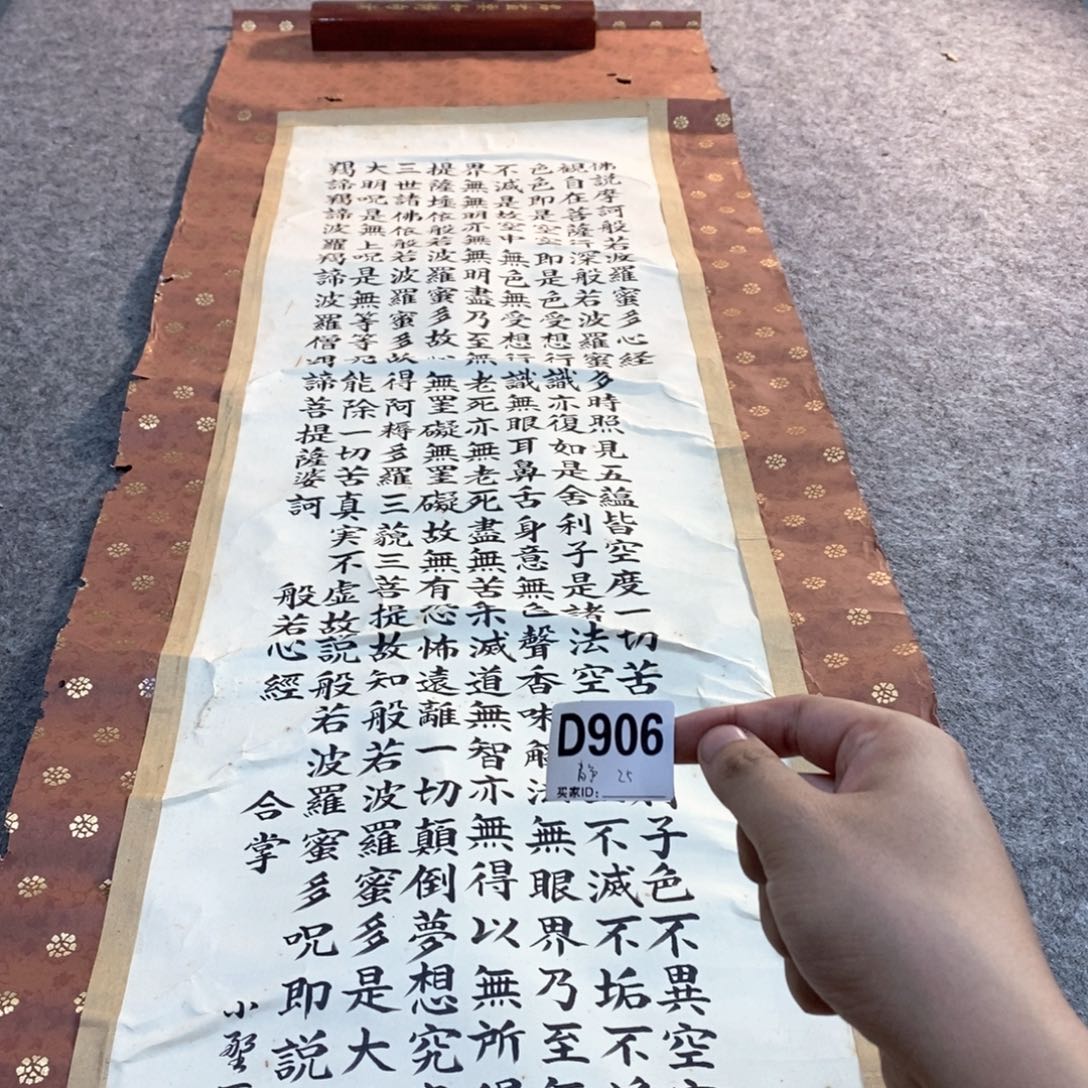 佛説摩訶般若波羅蜜多心経
観自在菩薩行深般若波羅蜜多時照見五蘊皆空度一切苦
子色不異空
色色即是空空即是色受想行識亦復如是舍利子是諸法空
不滅不垢不
不滅是故空中無色無受想行識無眼耳鼻舌身意無色聲香味觸法無眼界乃至無
界無無明亦無無明盡乃至無老死亦無老死盡無苦集滅道無智亦無得以無所得
提薩埵依般若波羅蜜多故心無罣礙無罣礙故無有恐怖遠離一切顛倒夢想究
三世諸佛依般若波羅蜜多故得阿耨多羅三藐三菩提故知般若波羅蜜多是大
大明呪是無上呪是無等等呪能除一切苦真実不虚故説般若波羅蜜多呪即説
羯諦羯諦波羅羯諦波羅僧羯諦菩提薩婆訶
般若心經
合掌
D906
静 25
买家ID: